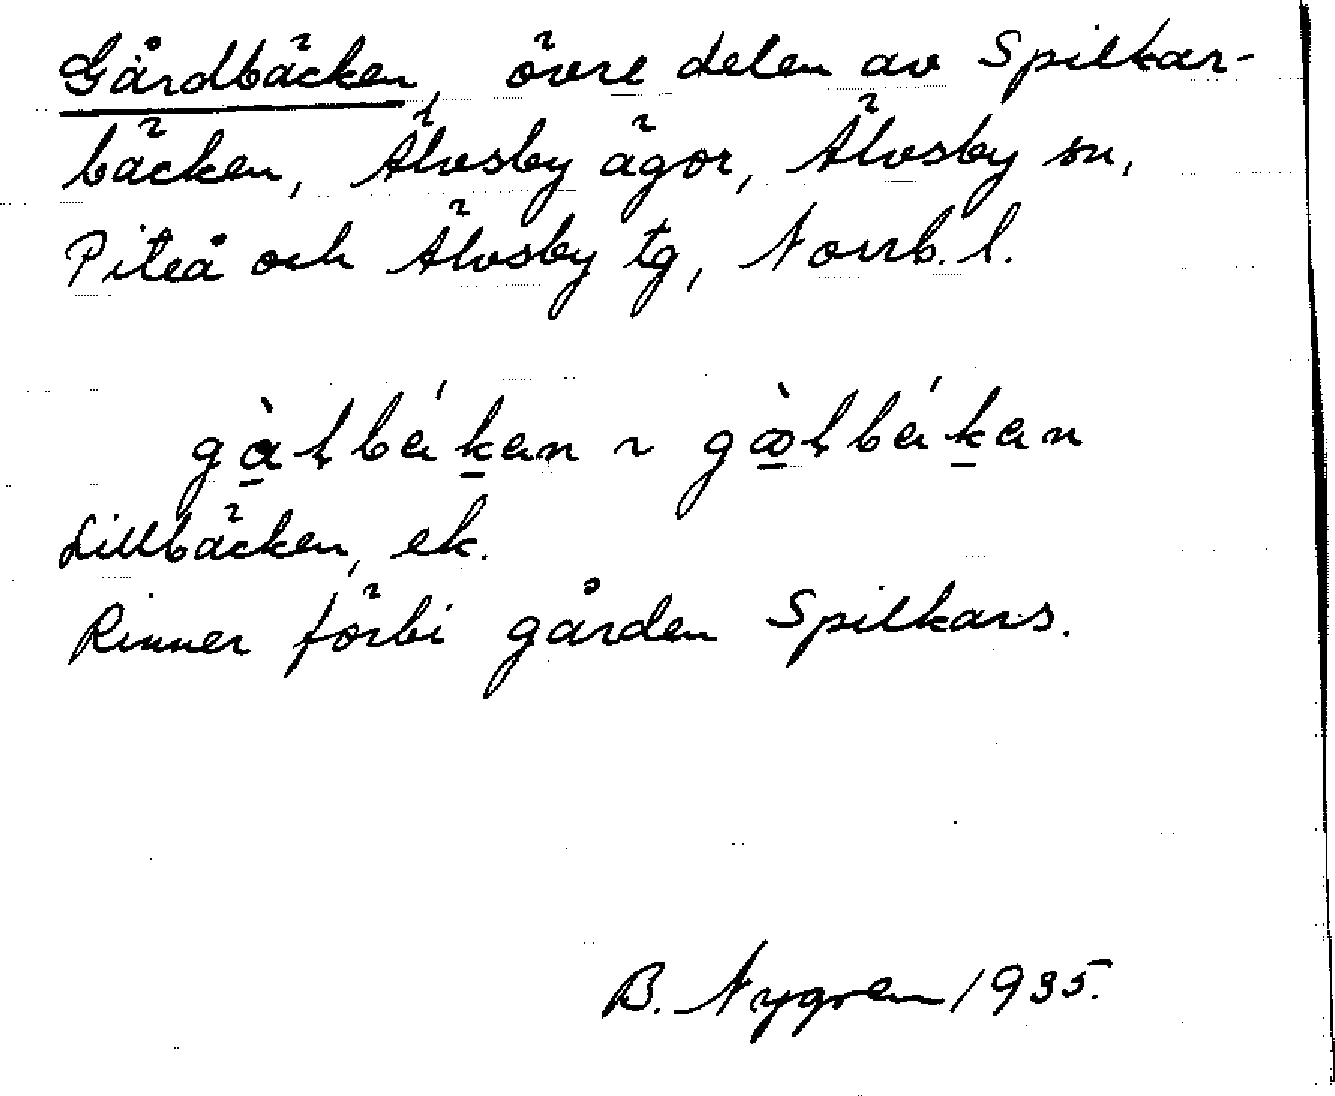 Gårdbäcken, övre delen av Spilkar-
bäcken, Älvsby ägor, Älvsby sn,
Piteå och Älvsby tg, Norrb. l.
Lillbäcken, ek.
Rinner förbi gården Spilkars.
B. Nygren 1935.